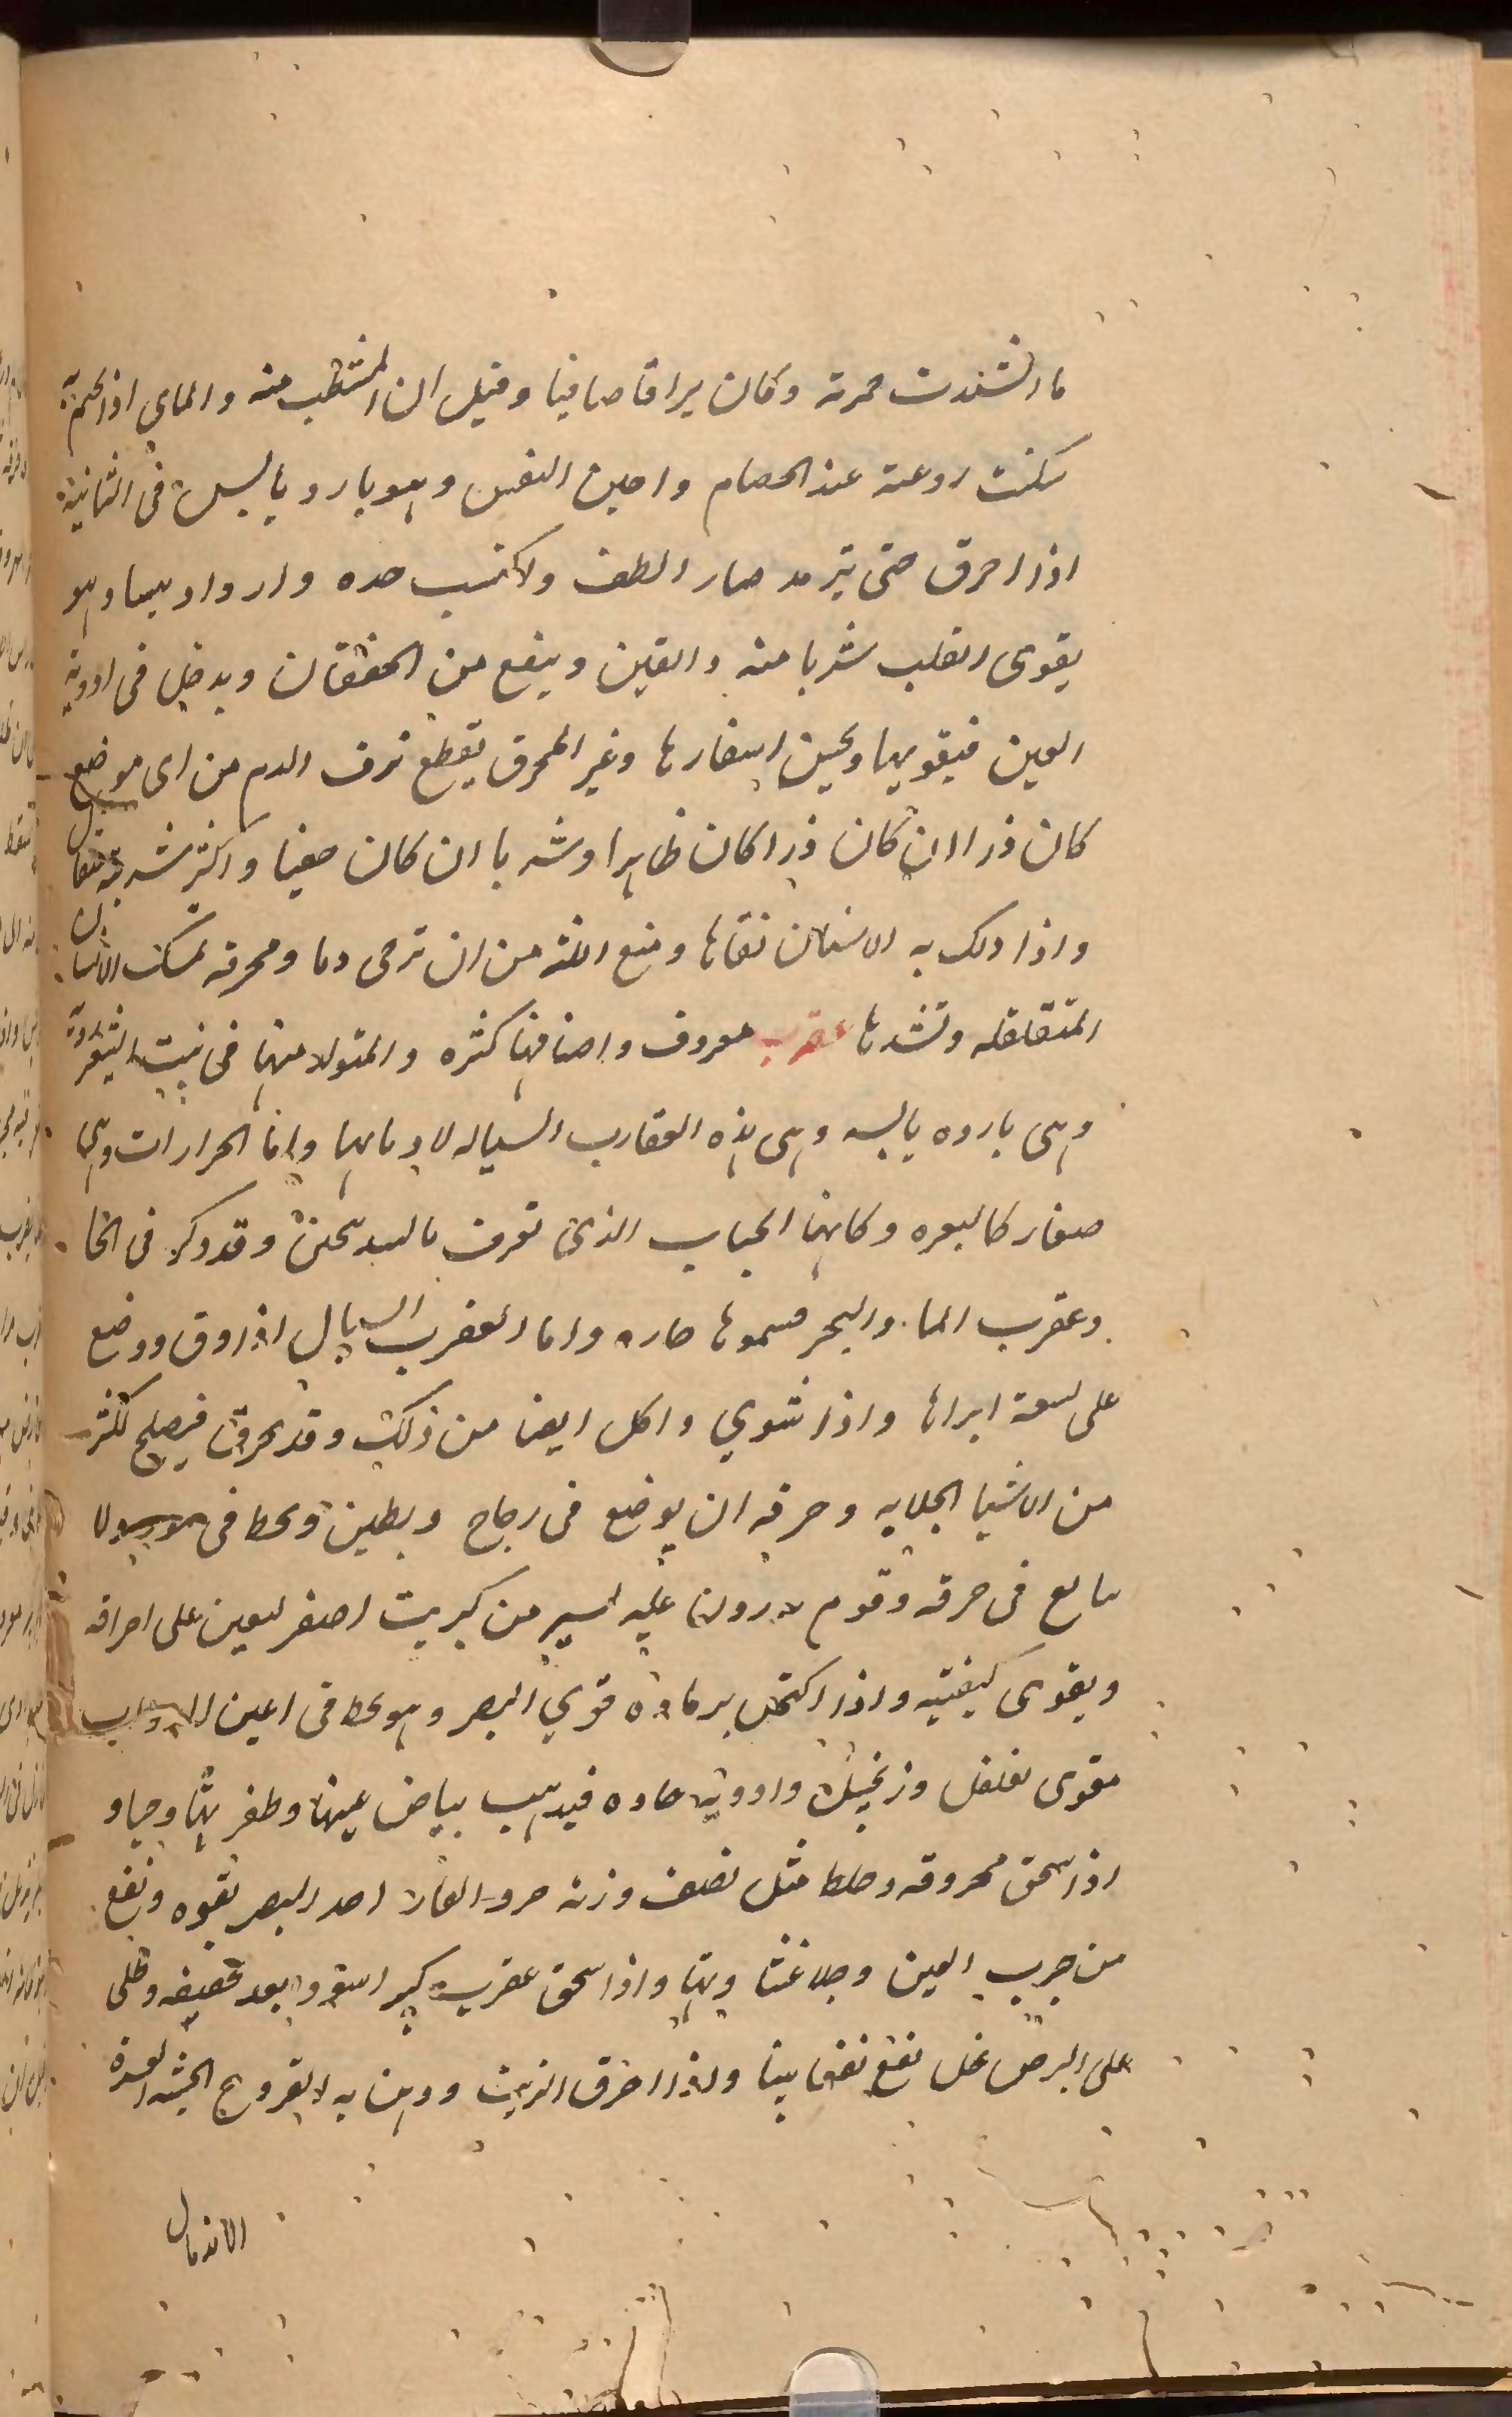 ما اشتدت حمرته وكان براقا صافيا وقيل ان المشطب منه والماى اذا تختم به
سكنت روعته عند الخصام واحين النفس وهو بارد يابس فى الثانية
اذا احرق حتى يترمد صار الطف ولاكتسب حده وازداد يبسا وهو
يقوى القلب شربا منه والقين وينفع من الخفقان ويدخل فى ادوية
العين فيقويها ويحسن اسفارها وغير المحرق يقطع نزف الدم من اى موضع
كان ذرا ان كان ذرا كان ظاهرا وشربا ان كان خفيا واكثر شربه مثقال
واذا دلك به الاسنان نقاها ومنع اللثة من ان ترمى دما ومحرقه تمسك الاسنان
المتقلقله وتشدها عقرب معروف واصنافها كثره والمتولد منها فى بيت
وهى بارده يابسه وهى هذه العقارب السياله لاذنابها واما الحرارات وهى
صغار كالبعره وكانها الحباب الذى تعرف وقد ذكر فى الحا
وعقرب الما والبحر فسموها حاره واما العقرب السيال اذا دق ووضع
على لسعة ابراها واذا شوي واكل ايضا من ذلك وقد يحرق فيصلح لكثر
من الاشيا الجلايه وحرقه ان يوضع فى زجاج ويطين ويحط فى ولا
يبالغ فى حرقه وقوم يذرون عليه اليسير من كبريت اصفر ليعين على احراقه
ويقوى كيفيته واذا اكتحل برماده قوي البصر وهو يحط فى اعين الدواب
مقوى بفلفل وزنجبيل وادوية حاده فيذهب بياض عينها وظفرتها وحيا و
اذا سحق محروقه وخلط مثل نصف وزنه خرو الفار احد البصر بقوه ونفع
من جرب العين وجلا غشاوتها واذا سحق عقرب كبير اسود بعد تجفيفه وطلى
على البرص بخل نفع نفعا بينا واذا احرق الزيت ودهن به القروح الخبيثه العسرة
الاندمال